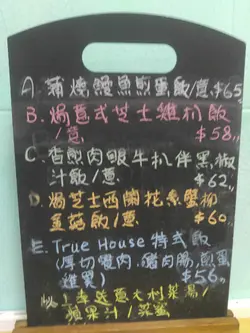 A. 蒲燒鰻魚煎蛋飯/意 $65
B. 焗意式芝士雞扒飯
/意 $58
C. 香煎肉眼牛扒伴黑椒
汁飯/意 $62
D. 焗芝士西蘭花素蟹柳
金菇飯/意 $60
E. True House 特式飯
(厚切雙肉:豬肉腸,煎蛋
$56
意大利菜湯/
蘋果汁/